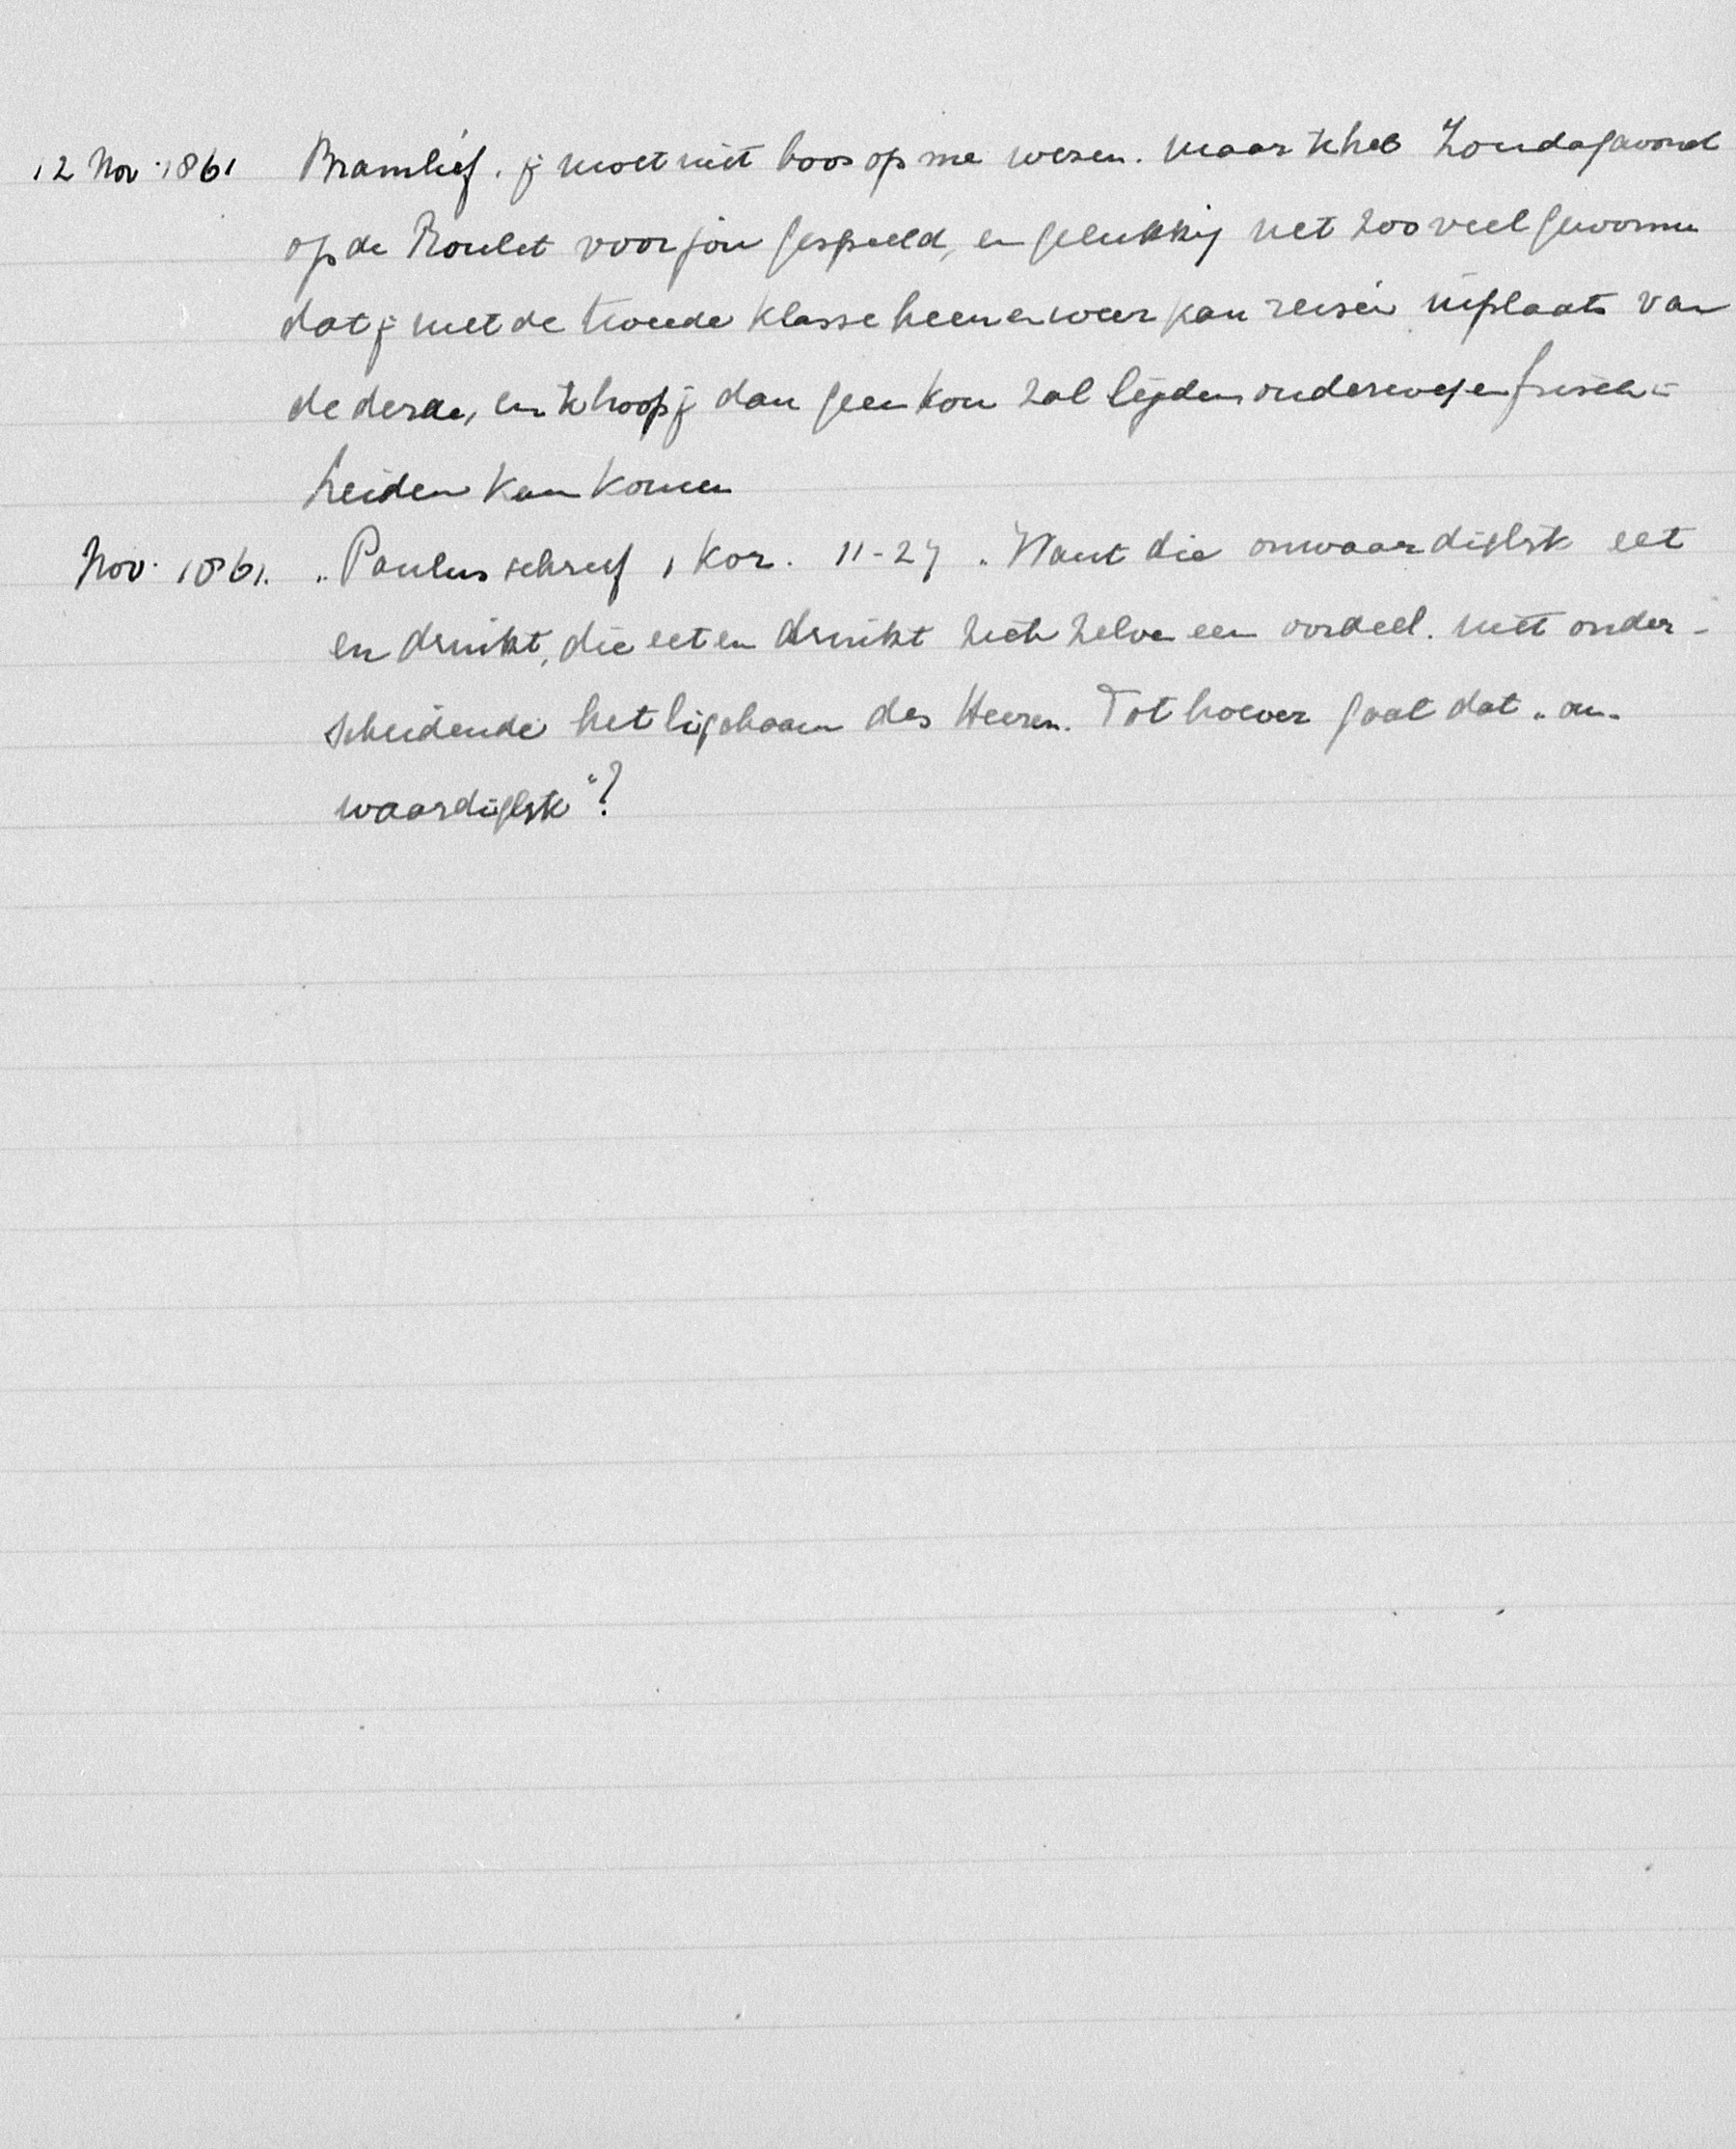 12 Nov. 1861 Bramlief. jy moet niet boos op me wesen. maar 'k heb Zondagavond
op de Roulet voor jou gespeeld, en gelukkig net zoo veel gewonnen
dat jy met de tweede klasse heen en weer kan reisen inplaats van
de derde, en 'k hoop jy dan geen kou zal lijden onderweg en frisch =
heiden kan komen
Nov. 1861. „Paulus schreef 1 Kor. 11-27 „Want die onwaardiglyk eet
en drinkt, die eet en drinkt zich zelven een oordeel. niet onder -
scheidende het ligchaam des Heeren. Tot hoever gaat dat „on-
waardiglyk"?